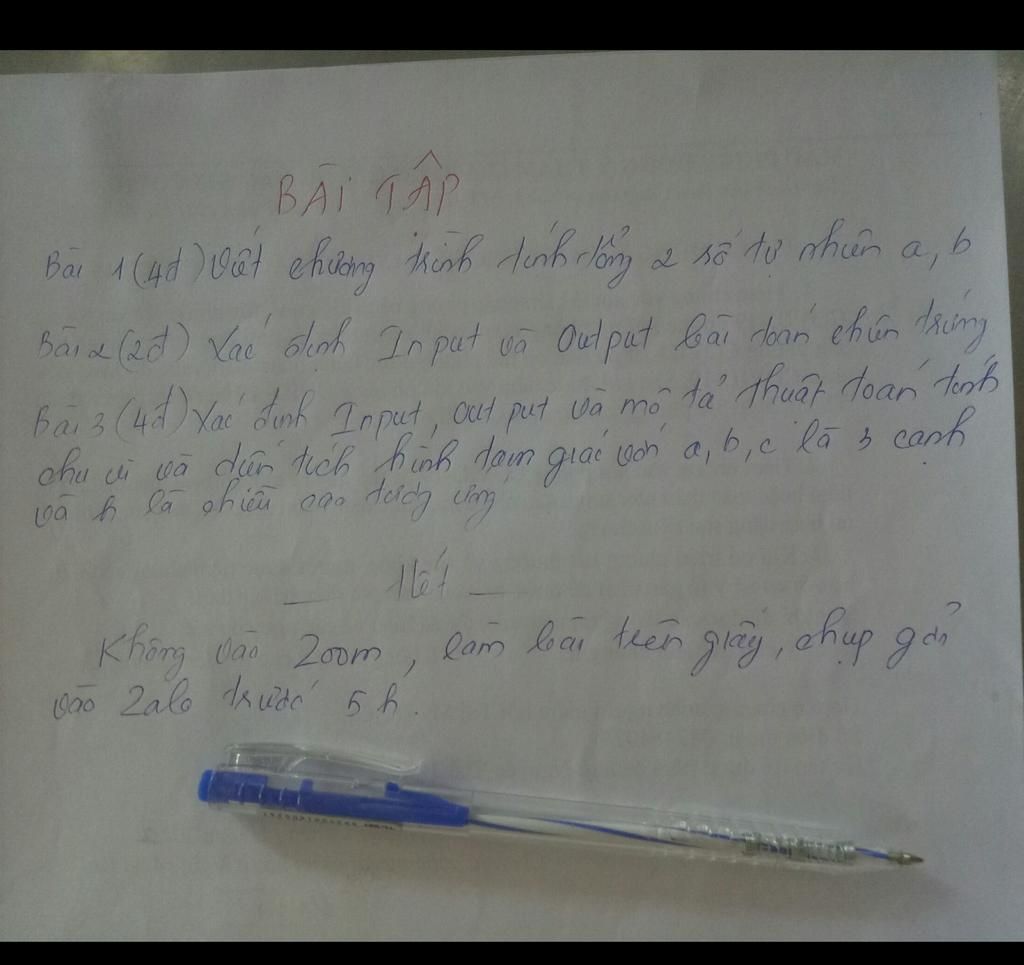 BÀI TẬP
Bài 1 (4đ) Viết chương trình tính tổng 2 số tự nhiên a, b
Bài 2 (2đ) Xác định Input và Output bài toán chiên trứng
Bài 3 (4đ) Xác định Input, output và mô tả thuật toán tính
chu vi và diện tích hình tam giác với a, b, c là 3 cạnh
và h là chiều cao tương ứng
__ Hết __
Không vào Zoom, làm bài trên giấy, chụp gửi
vào Zalo trước 5h.